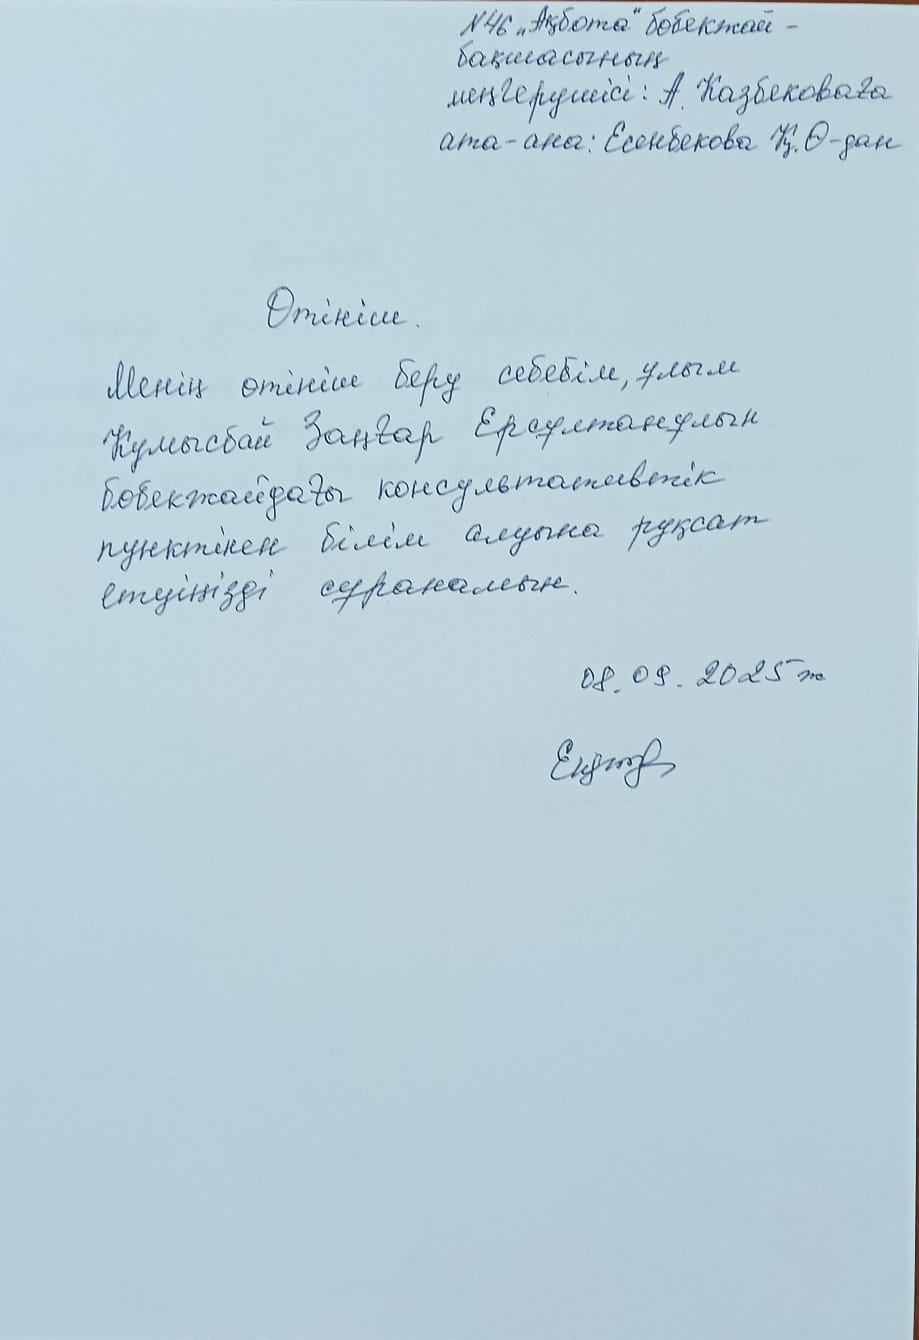 N46 „Ақбота“ бөбекжай -
бақшасының
меңгерушісі: А. Казбековаға
ата-ана: Есенбекова Қ. Ө-дан
Өтініш.
Менің өтініш беру себебім, ұлым
Кумысбай Заңғар Ерсұлтанұлын
бөбекжайдағы консультативтік
пунктінен білім алуына рұқсат
етуіңізді сұранамын.
08.09.2025 ж